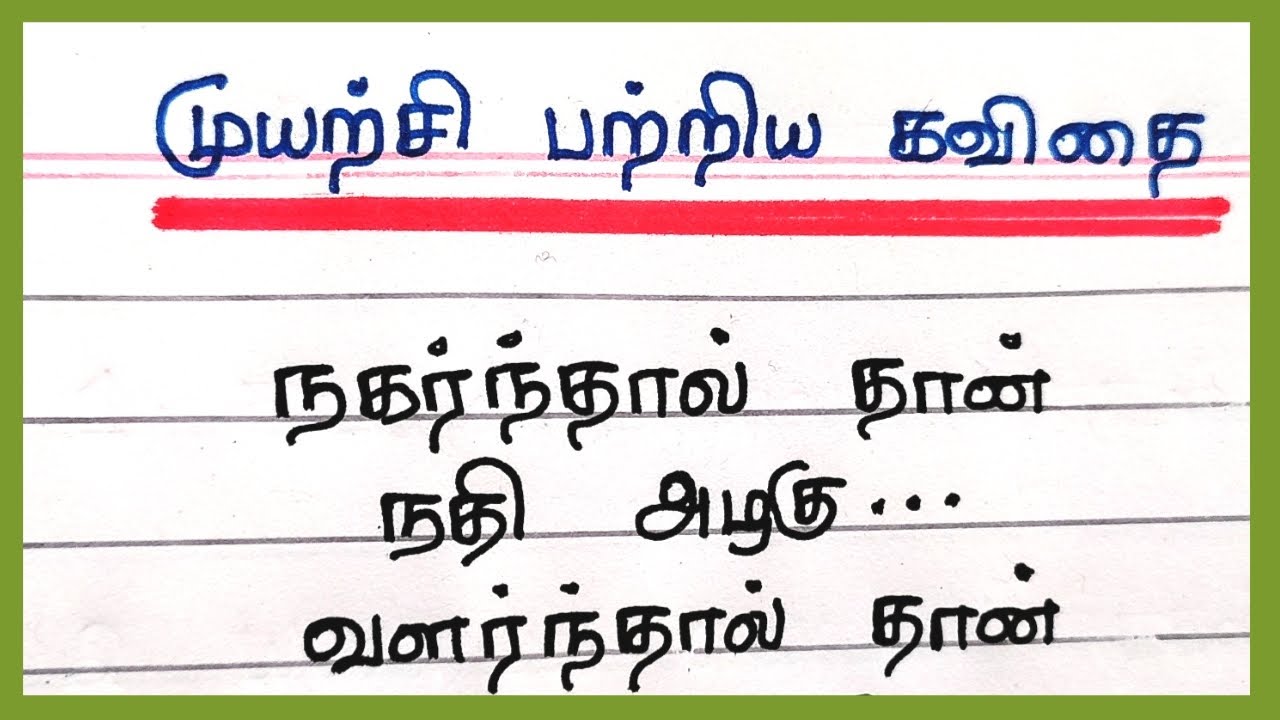 முயற்சி பற்றிய கவிதை
நகர்ந்தால் தான்
நதி அழகு...
வளர்ந்தால் தான்